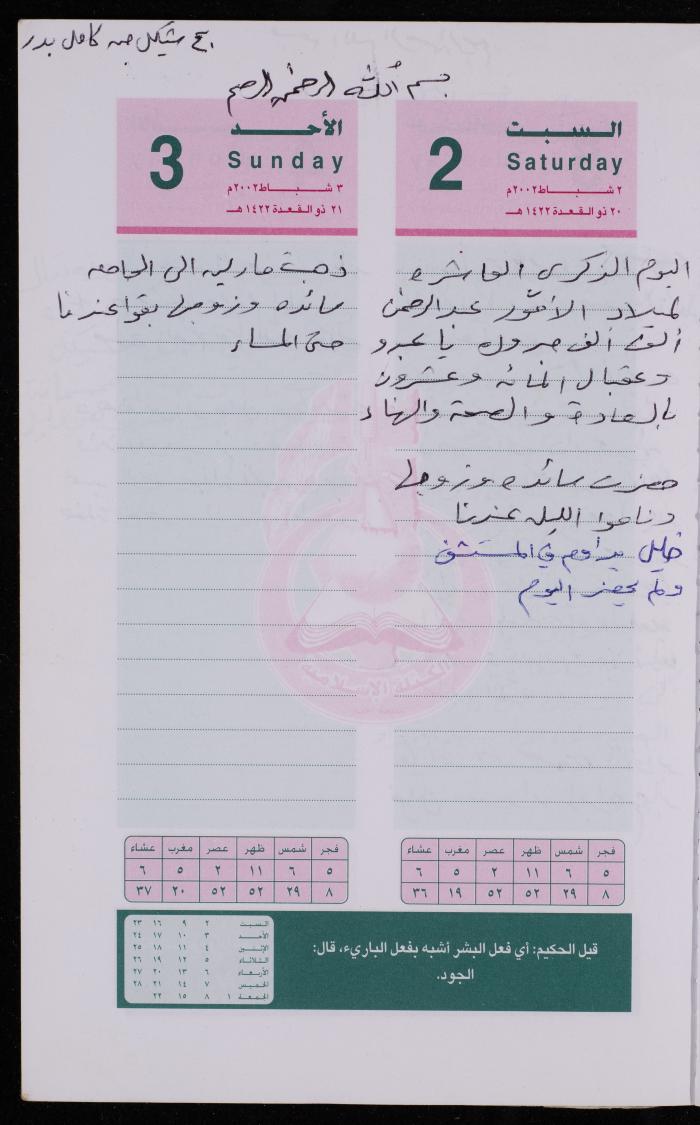 ٤٠ شيكل من كامل بدر
بسم الله الرحمن الرحيم
السبت
Saturday
2
٢ شباط ٢٠٠٢م
٢٠ ذو القعدة ١٤٢٢هـ
اليوم الذكرى العاشره
لميلاد عبدالرحمن
ألف ألف مبروك يا عبدو
وعقبال المائه وعشرون
بالسعادة والصحة والهناء
حضرت سائده وزوجها
وناموا الليله عندنا
خليل يداوم في المستشفى
ولم يحضر اليوم
فجر شمس ظهر عصر مغرب عشاء
٥ ٦ ١١ ٢ ٥ ٦
٨ ٢٩ ٥٢ ٥٢ ١٩ ٣٦
الأحد
Sunday
3
٣ شباط ٢٠٠٢م
٢١ ذو القعدة ١٤٢٢هـ
ذهبت مارلين الى الجامعه
سائده وزوجها بقوا عندنا
حتى المساء
فجر شمس ظهر عصر مغرب عشاء
٥ ٦ ١١ ٢ ٥ ٦
٨ ٢٩ ٥٢ ٥٢ ٢٠ ٣٧
الكتلة الإسلامية
قيل الحكيم: أي فعل البشر أشبه بفعل الباريء، قال:
الجود.
السبت ٢ ٩ ١٦ ٢٣
الأحد ٣ ١٠ ١٧ ٢٤
الإثنين ٤ ١١ ١٨ ٢٥
الثلاثاء ٥ ١٢ ١٩ ٢٦
الأربعاء ٦ ١٣ ٢٠ ٢٧
الخميس ٧ ١٤ ٢١ ٢٨
الجمعة ١ ٨ ١٥ ٢٢